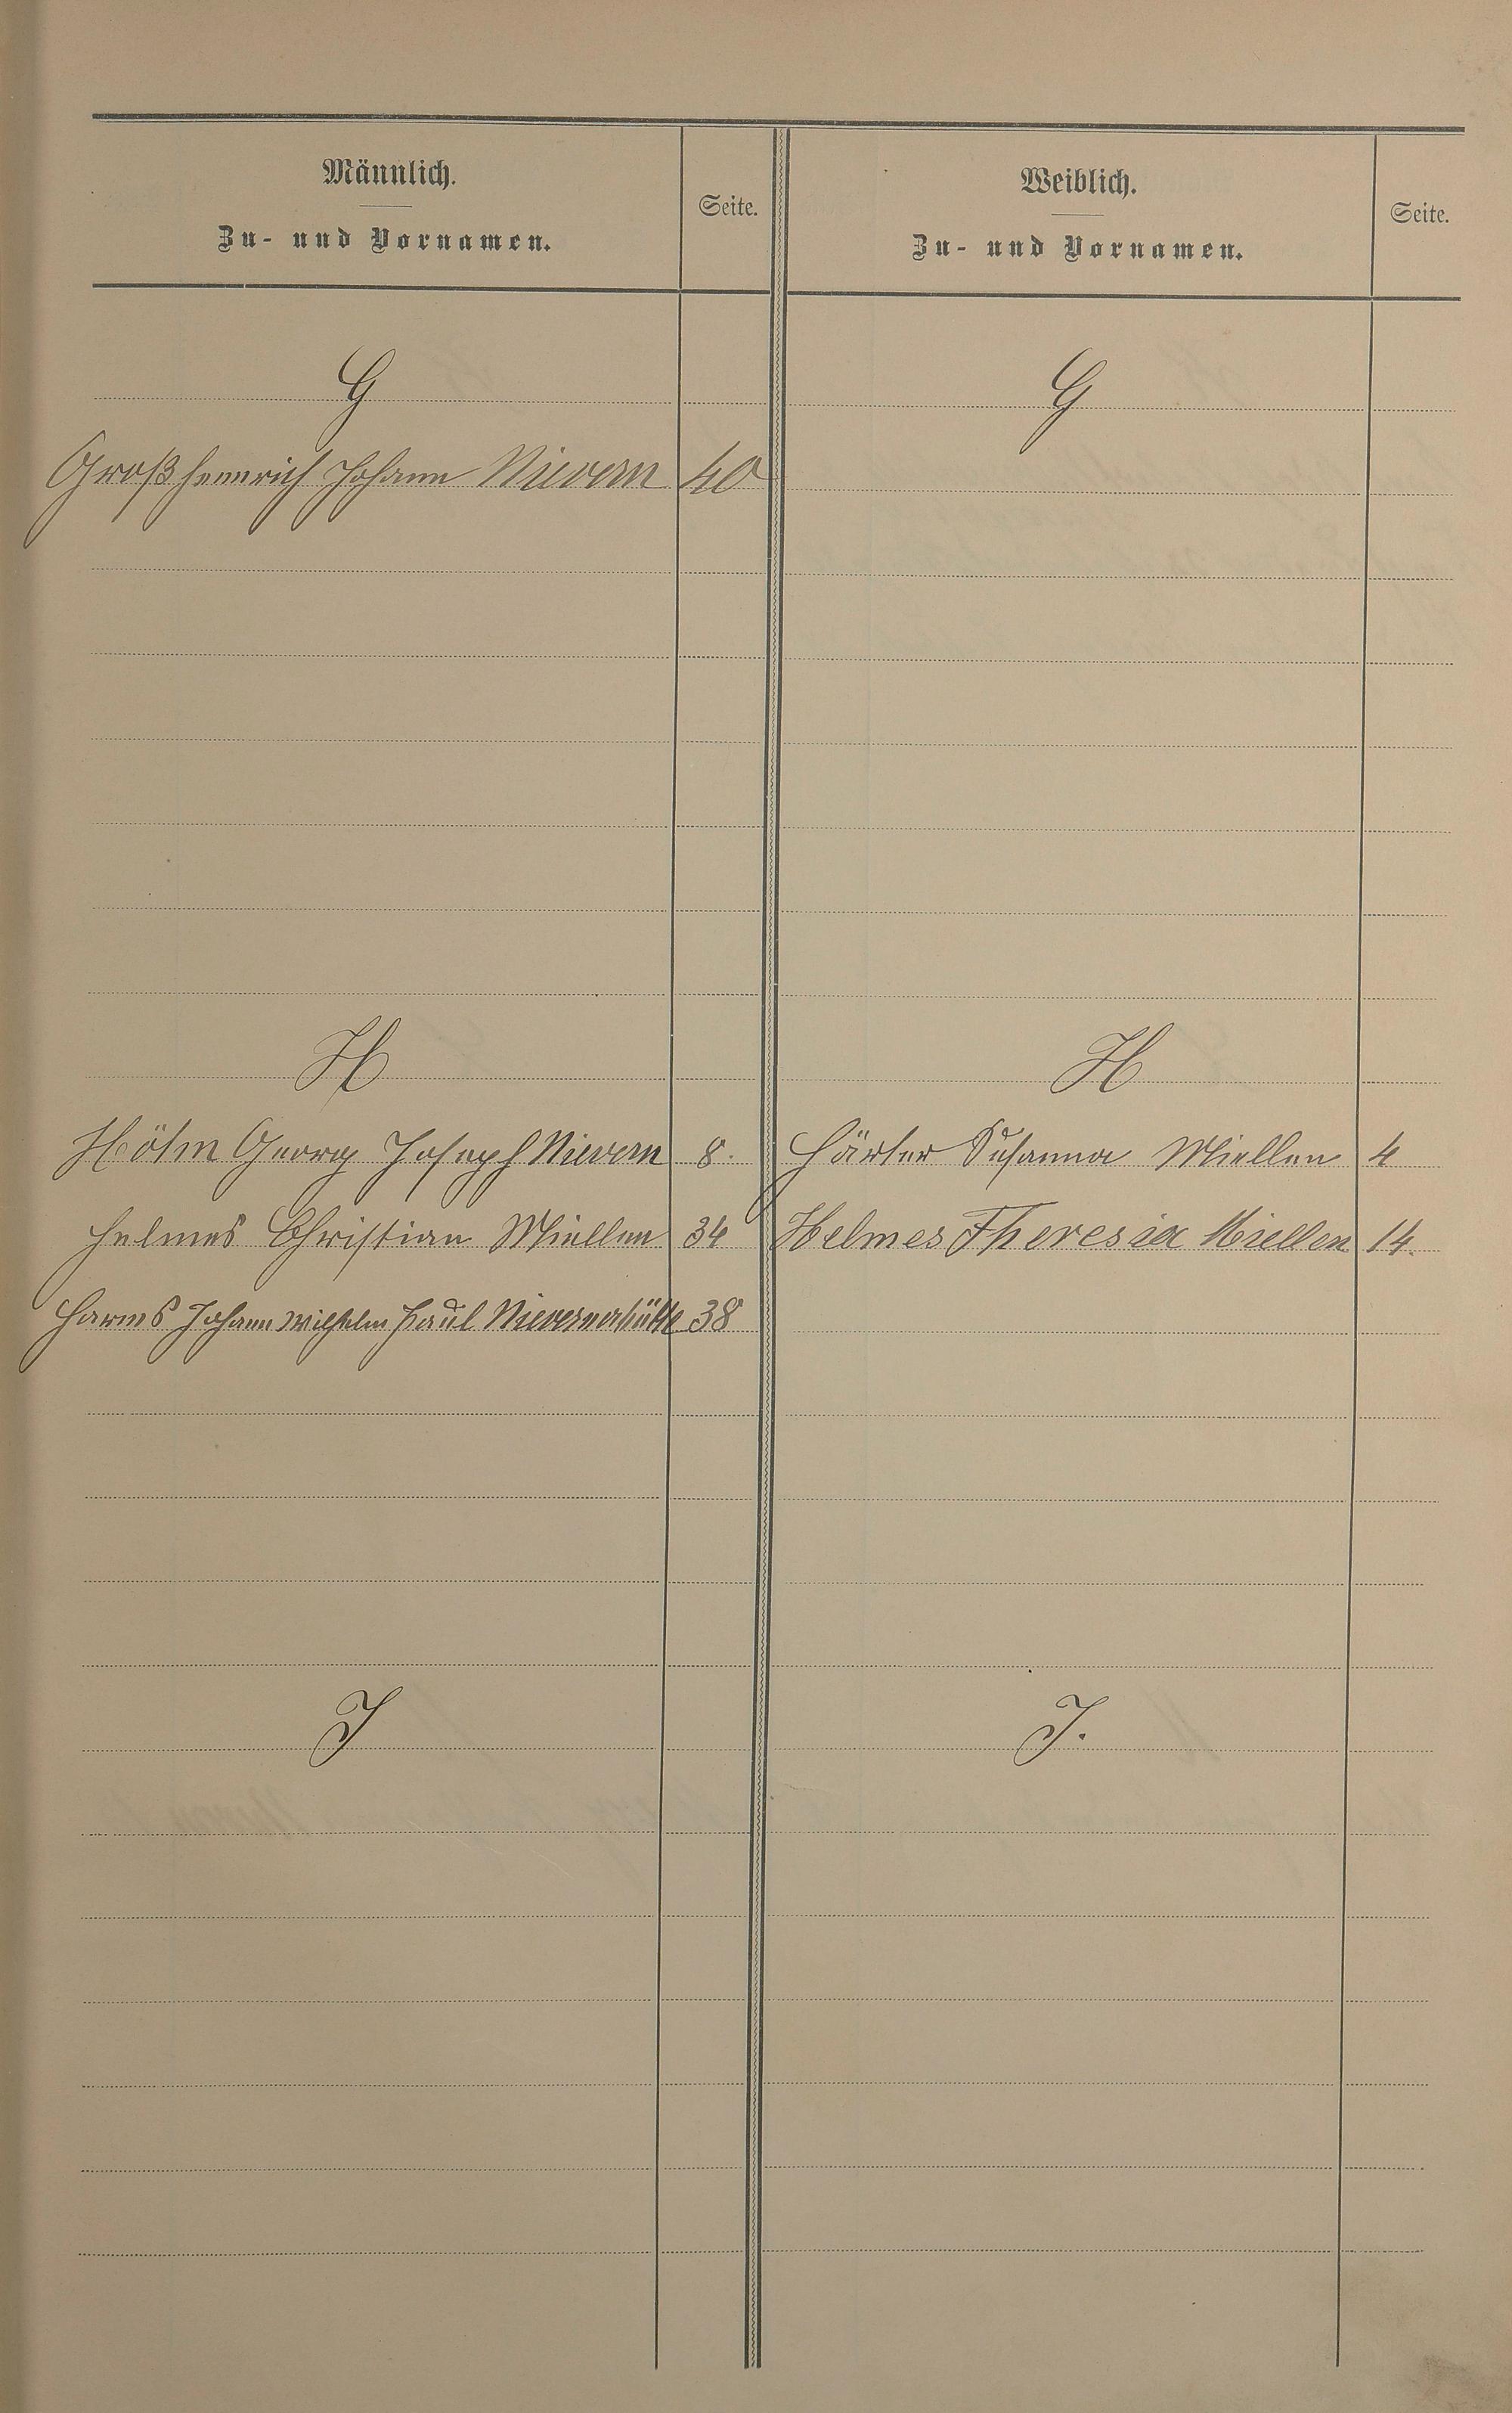 Männlich.
Zu- und Vornamen.
Seite.
Weiblich.
Zu- und Vornamen.
Seite.
G
G
Groß Heinrich Johann Nievern 40
H
H
Höhn Georg Joseph Nievern 8.
Härter Susanna Miellen 4
Helmes Christian Miellen 34
Helmes Theresia Miellen 14.
Harms Johann Wilhelm Paul Nievernerhütte 38
J
J.